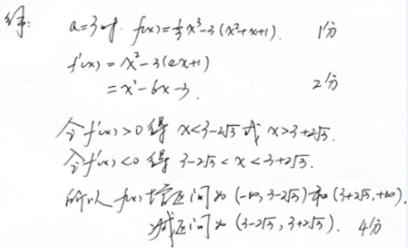 解: a=3时. f(x)=⅓x³-3(x²+x+1). 1分
f'(x)=x²-3(2x+1) 2分
=x²-6x-3.
令f'(x)>0得 x<3-2√3或 x>3+2√3.
令f'(x)<0得 3-2√3<x<3+2√3.
所以f(x)增区间为(-∞,3-2√3)和(3+2√3,+∞).
减区间为(3-2√3,3+2√3). 4分